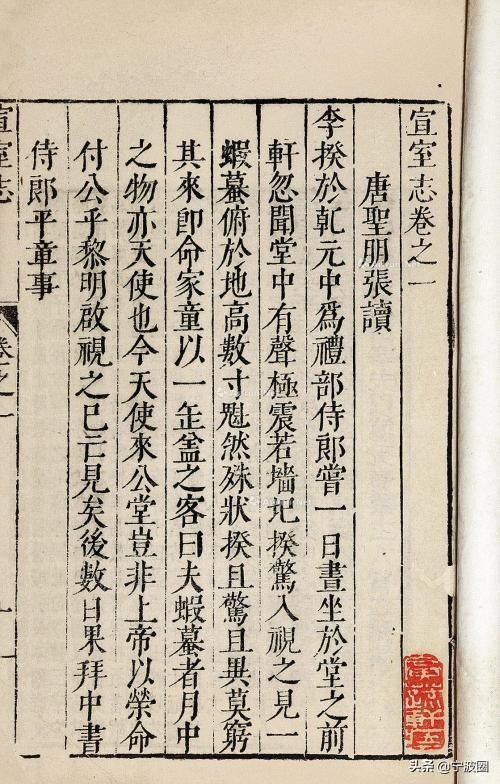 宣室志卷之一
唐聖朋張讀
李揆於乹元中爲禮部侍郎嘗一日晝坐於堂之前
軒忽聞堂中有聲極震若墻圮揆驚入視之見一
蝦蟇俯於地高數寸魁然殊狀揆且驚且異莫窮
其來即命家童以一缶之客曰夫蝦蟇者月中
之物亦天使也今天使來公堂豈非上帝以榮命
付公乎黎明啟視之已亡見矣後數日果拜中書
侍郎平章事
宣室志
卷之一
头条 @宁波圈